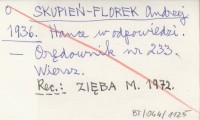 SKUPIEŃ-FLOREK Andrzej
1936. Hance w odpowiedzi.
— Orędownik nr 233.
Wiersz.
Rec.: ZIĘBA M. 1972.
BI/064/1125